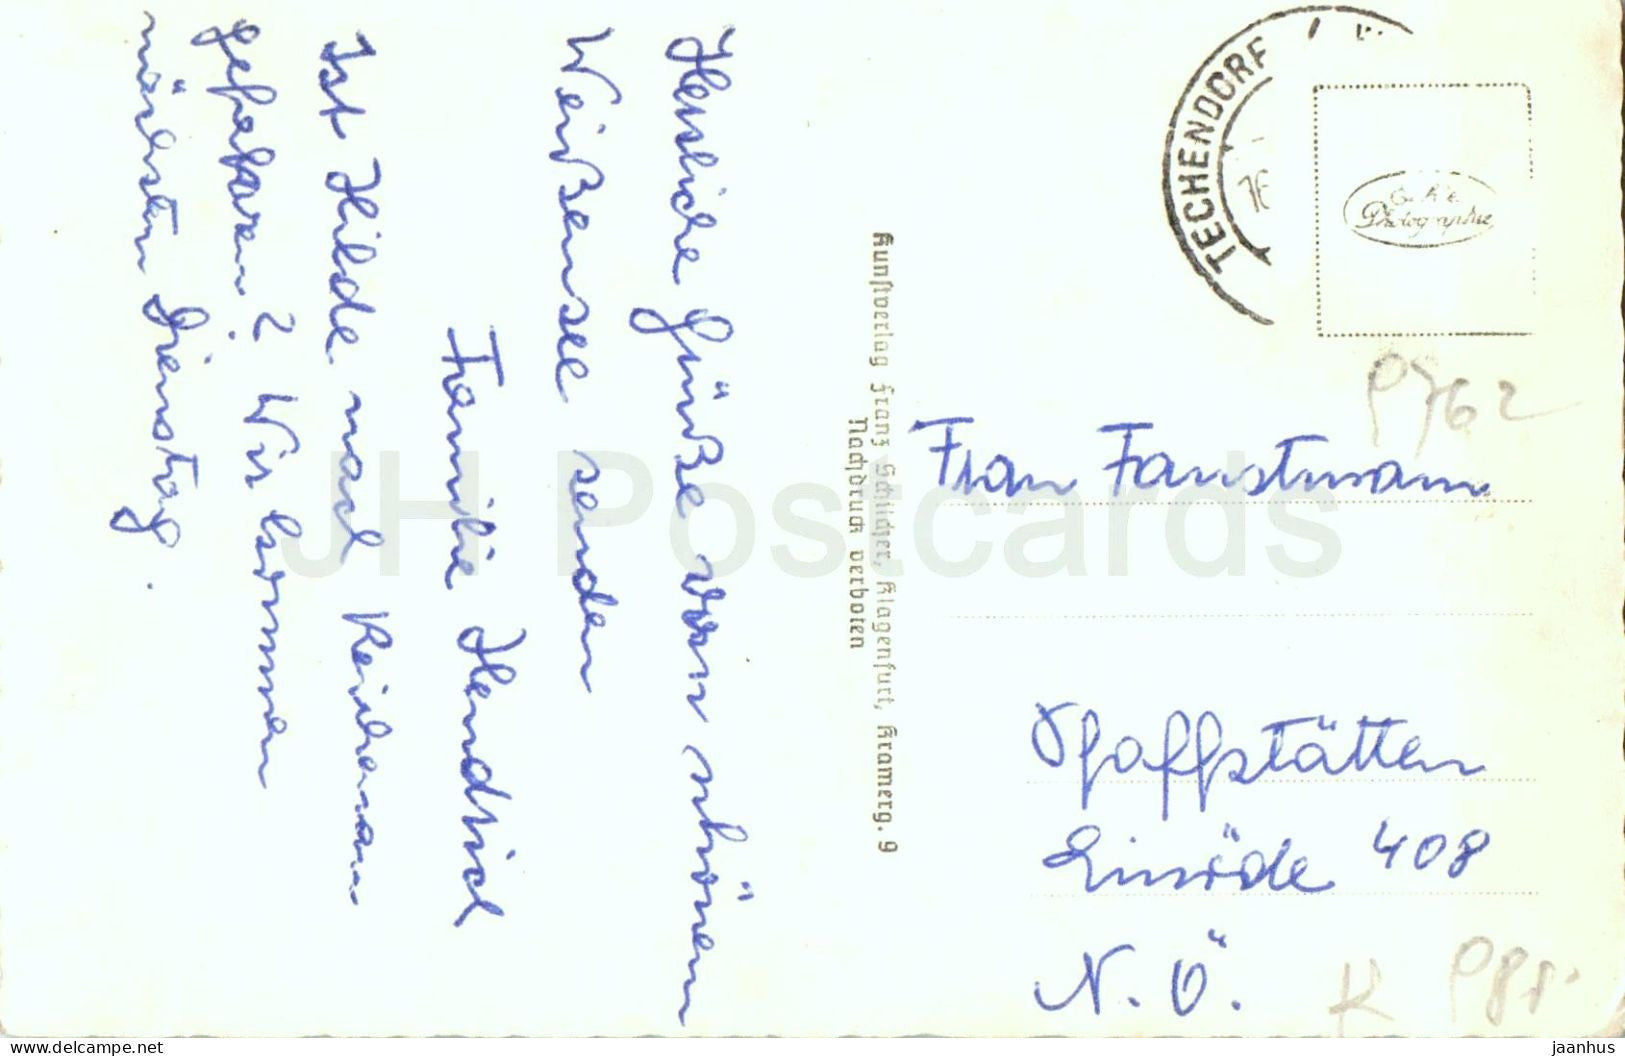 Herzliche Grüße vom schönen
Weißensee senden
Familie Hendrich
Ist Hilde nach Reichenau
gefahren? Wir kommen
nächsten Dienstag.
Kunstverlag Franz Schilcher, Klagenfurt, Kramerg. 9
Nachdruck verboten
TECHENDORF
16
Echte
Photographie
P762
Frau Faustmann
Pfaffstätten
Einöde 408
N.Ö.
K P81
JH Postcards
www.delcampe.net
jaanhus